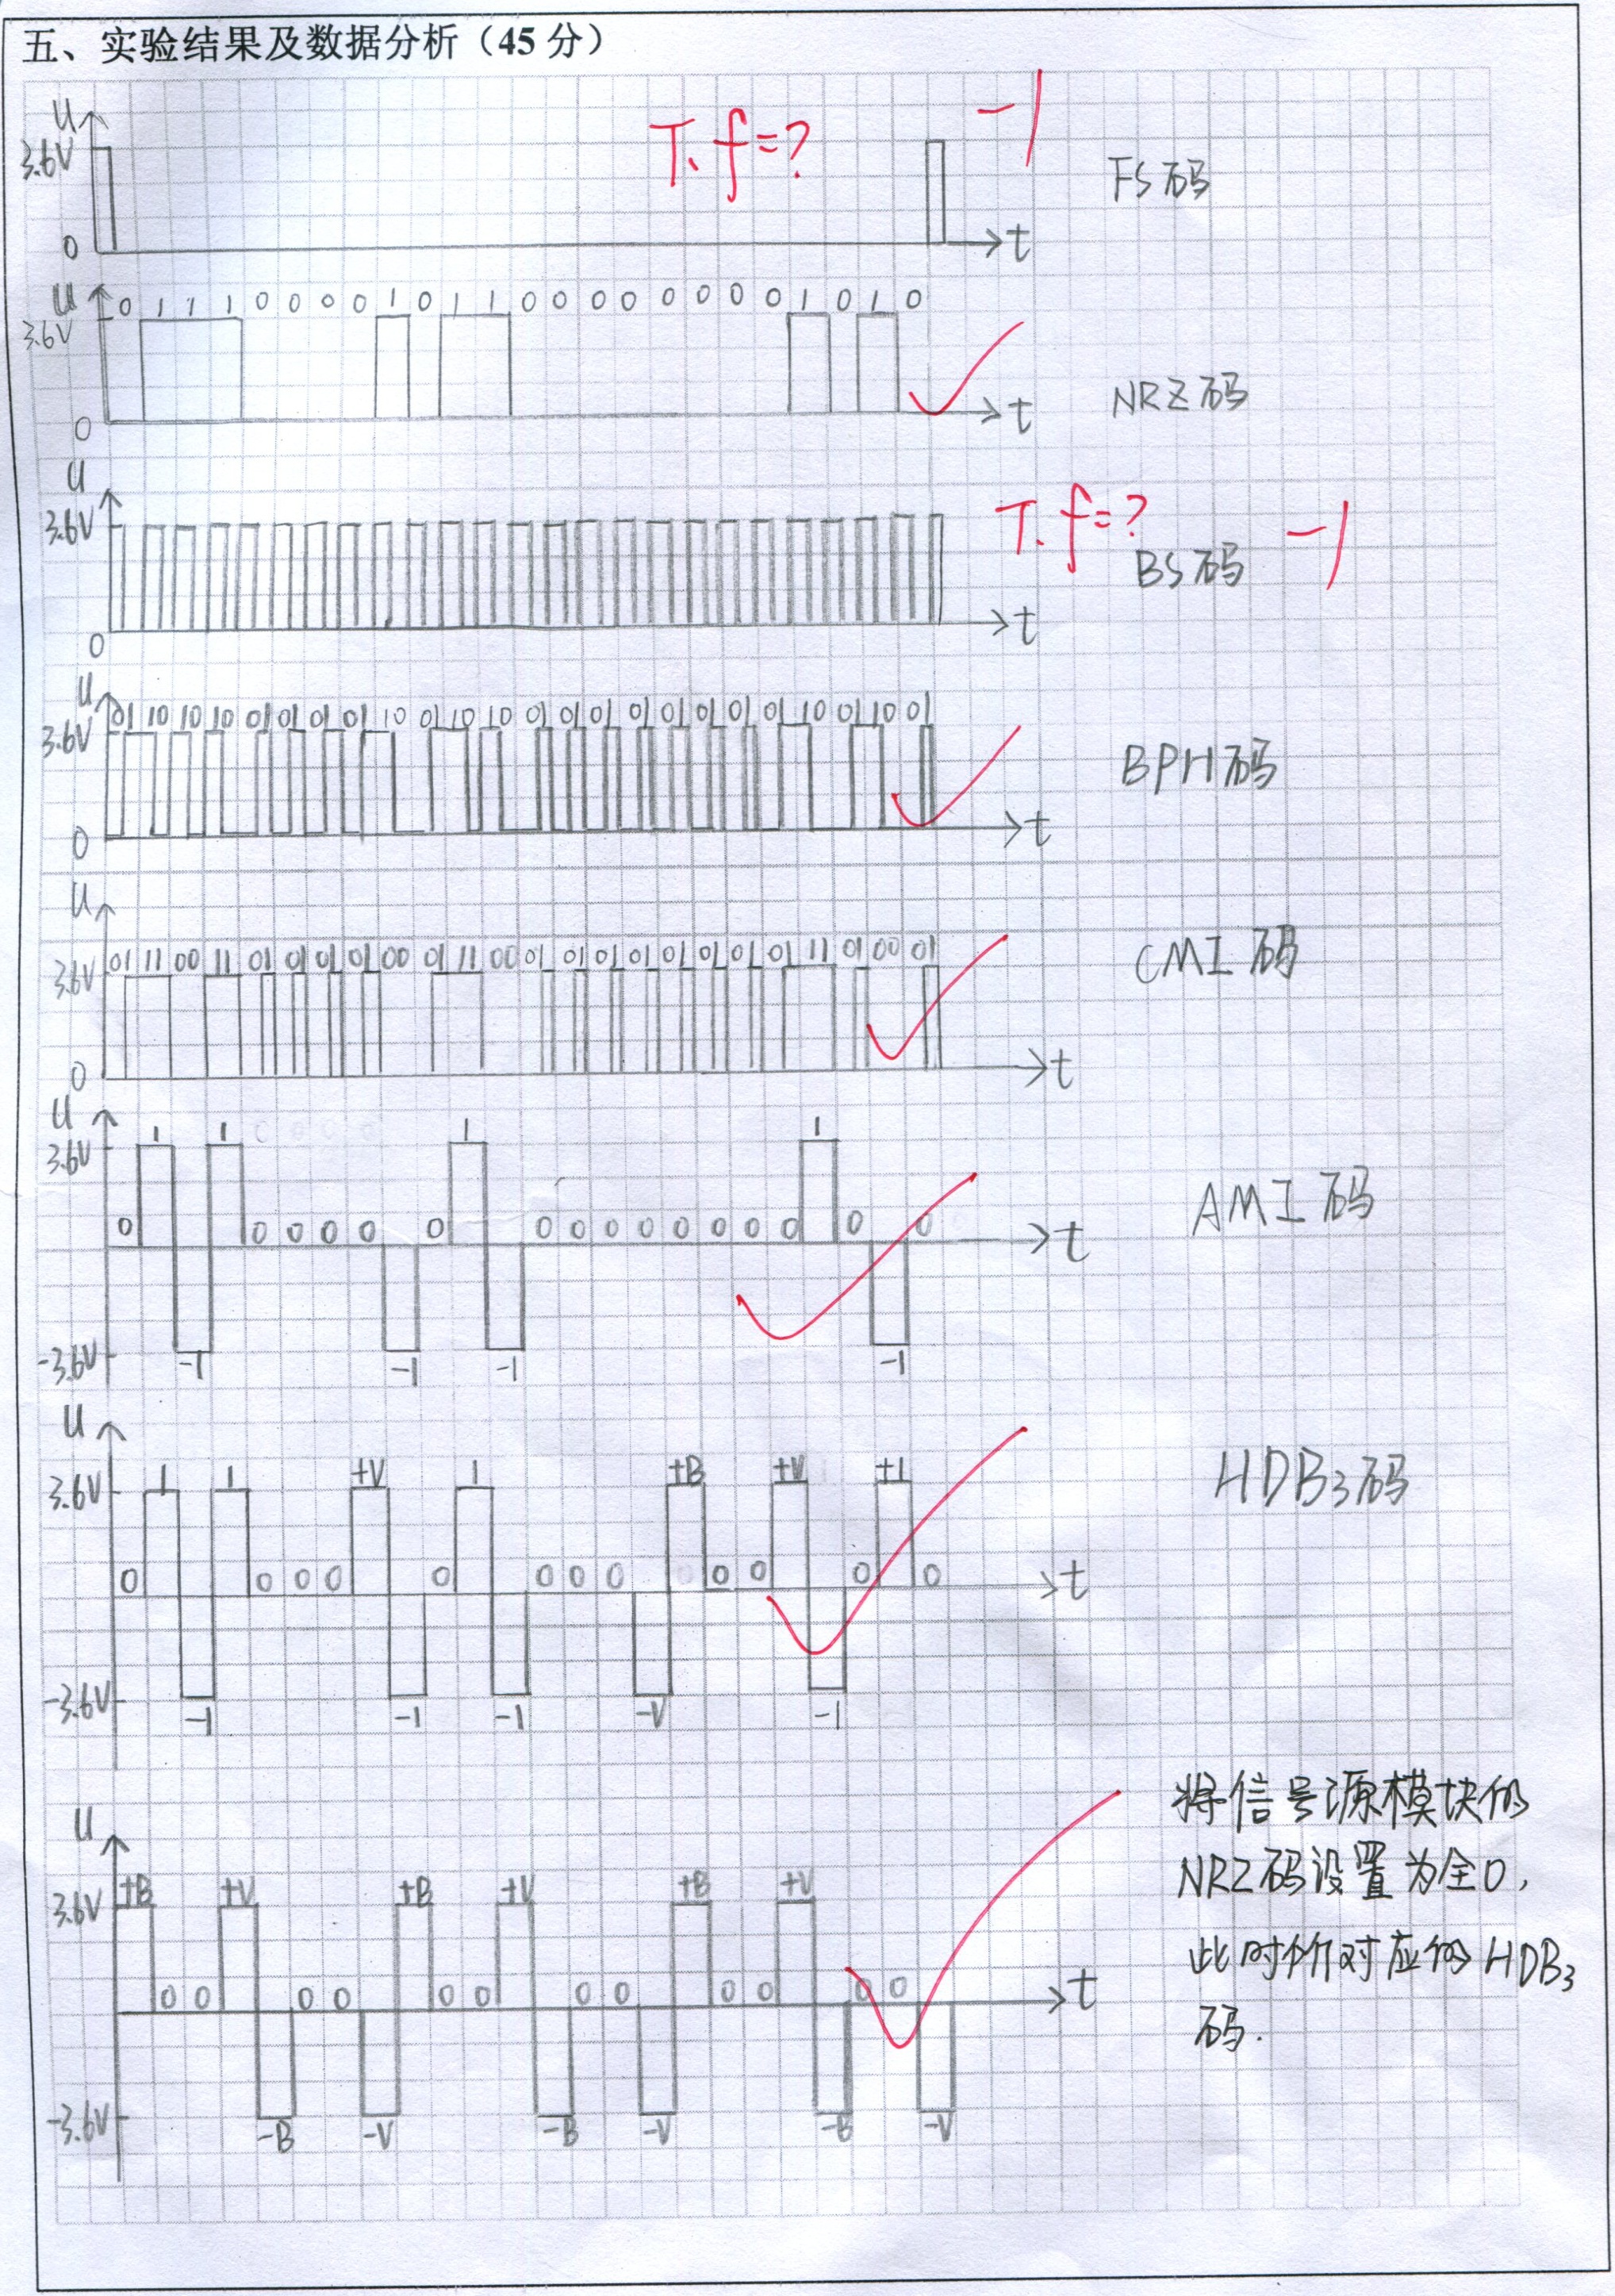 五、实验结果及数据分析（45 分）
U
3.6V
0
t
T、f=?
-1
FS码
U
3.6V
0 1 1 1 0 0 0 0 1 0 1 1 0 0 0 0 0 0 0 0 1 0 1 0
0
t
NRZ码
U
3.6V
0
t
T、f=?
-1
BS码
U
3.6V
01 10 10 10 01 01 01 01 10 01 10 10 01 01 01 01 01 01 01 01 10 01 10 01
0
t
BPH码
U
3.6V
01 11 00 11 01 01 01 01 00 01 11 00 01 01 01 01 01 01 01 01 11 01 00 01
0
t
CMI码
U
3.6V
1 1 1 1
0 0 0 0 0 0 0 0 0 0 0 0 0 0 0 0 0
t
-3.6V
-1 -1 -1 -1
AMI码
U
3.6V
1 1 +V 1 +B +V +1
0 0 0 0 0 0 0 0 0 0 0 0
t
-3.6V
-1 -1 -1 -V -1
HDB3码
U
3.6V
+B +V +B +V +B +V
0 0 0 0 0 0 0 0 0 0 0 0
t
-3.6V
-B -V -B -V -B -V
将信号源模块的
NRZ码设置为全0，
此时所对应的HDB3
码.